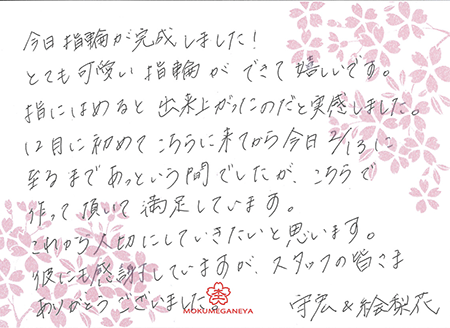 今日指輪が完成しました!
とても可愛い指輪ができて嬉しいです。
指にはめると出来上がったのだと実感しました。
12月に初めてこちらに来てから今日2/13に
至るまであっという間でしたが、こちらで
作って頂いて満足しています。
これから大切にしていきたいと思います。
彼にも感謝していますが、スタッフの皆さま
ありがとうございました
守宏&絵梨花
MOKUMEGANEYA